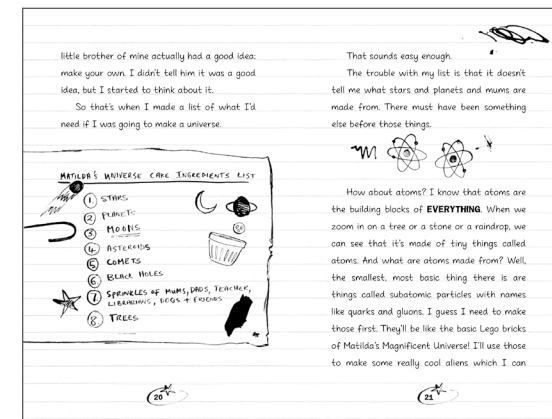 little brother of mine actually had a good idea:
make your own. I didn't tell him it was a good
idea, but I started to think about it.
So that's when I made a list of what I'd
need if I was going to make a universe.
MATILDA'S UNIVERSE CAKE INGREDIENTS LIST
1 STARS
2 PLANETS
3 MOONS
4 ASTEROIDS
5 COMETS
6 BLACK HOLES
7 SPRINKLES OF MUMS, DADS, TEACHER,
LIBRARIANS, DOGS + FRIENDS
8 TREES
20
That sounds easy enough.
The trouble with my list is that it doesn't
tell me what stars and planets and mums are
made from. There must have been something
else before those things.
How about atoms? I know that atoms are
the building blocks of EVERYTHING. When we
zoom in on a tree or a stone or a raindrop, we
can see that it's made of tiny things called
atoms. And what are atoms made from? Well,
the smallest, most basic thing there is are
things called subatomic particles with names
like quarks and gluons. I guess I need to make
those first. They'll be like the basic Lego bricks
of Matilda's Magnificent Universe! I'll use those
to make some really cool aliens which I can
21